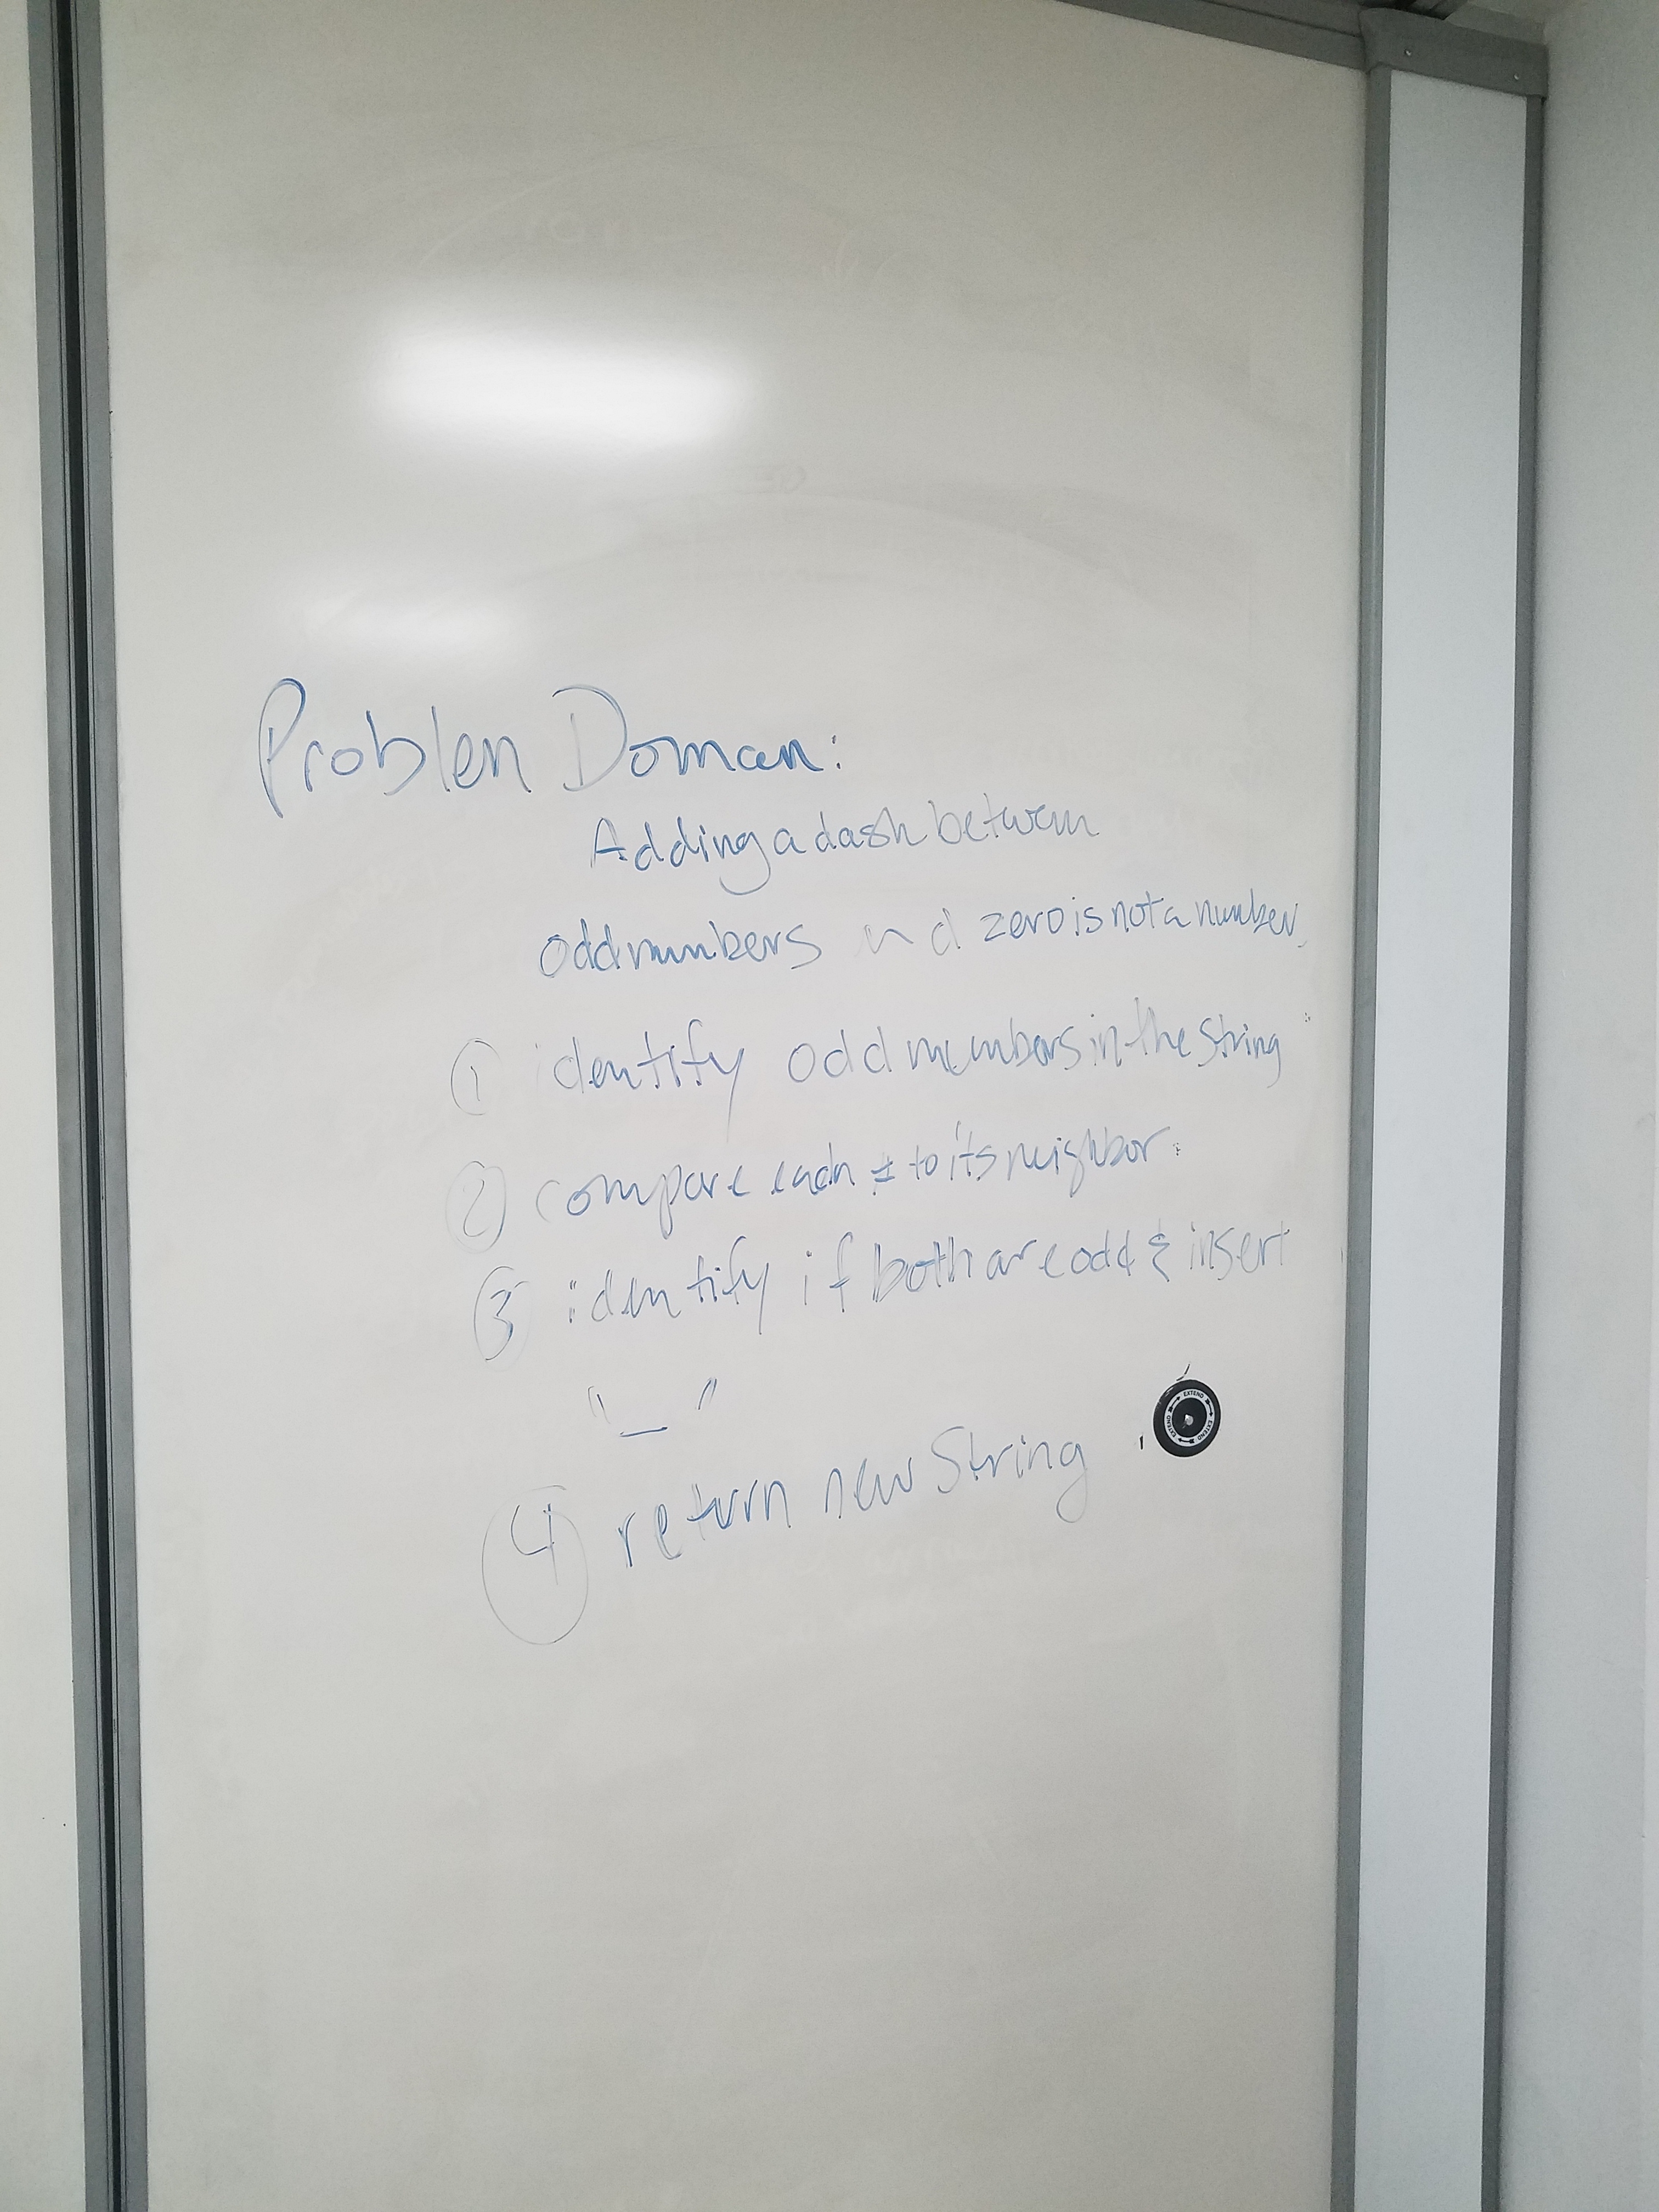 Problem Doman:
Adding a dash between
odd numbers and zero is not a number.
① identify odd numbers in the string
② compare each # to its neighbor.
③ identify if both are odd & insert
"_"
④ return new String
EXTEND EXTEND EXTEND